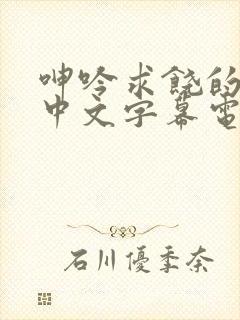 呻吟求饶的
中文字幕電
石川優季奈